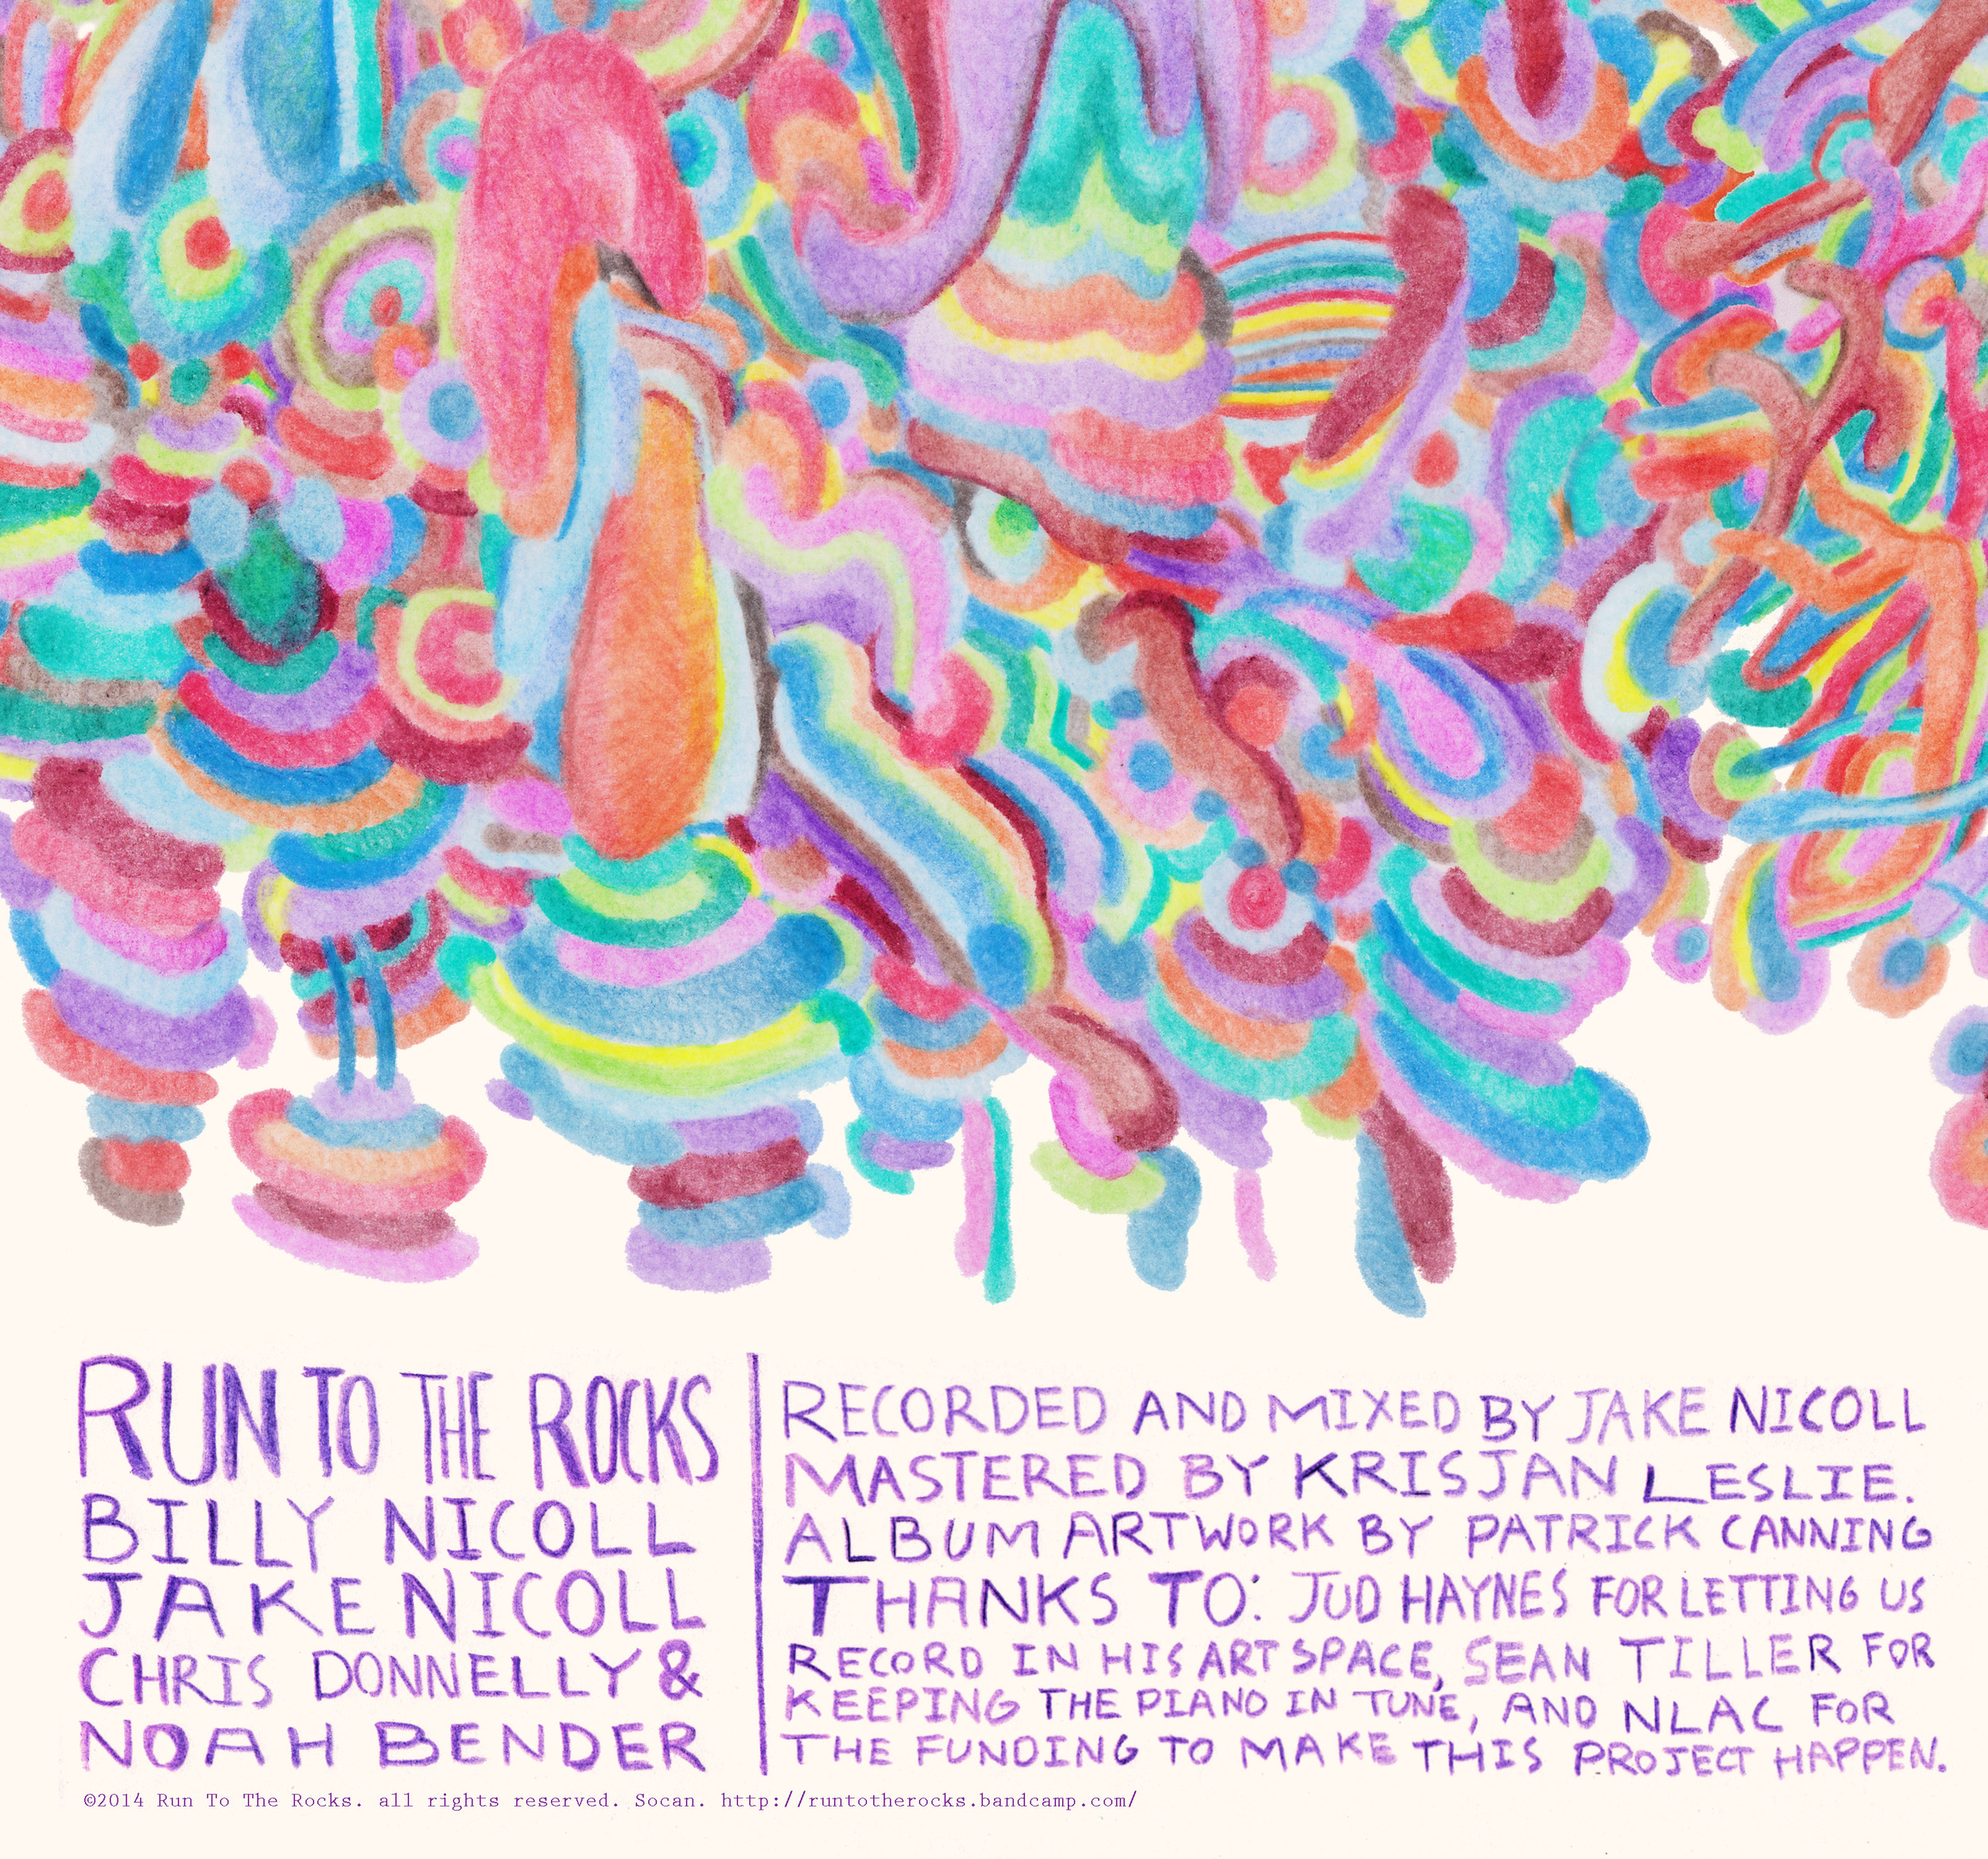 RUN TO THE ROCKS
BILLY NICOLL
JAKE NICOLL
CHRIS DONNELLY &
NOAH BENDER
RECORDED AND MIXED BY JAKE NICOLL
MASTERED BY KRISJAN LESLIE.
ALBUM ARTWORK BY PATRICK CANNING
THANKS TO: JUD HAYNES FOR LETTING US
RECORD IN HIS ART SPACE, SEAN TILLER FOR
KEEPING THE PIANO IN TUNE, AND NLAC FOR
THE FUNDING TO MAKE THIS PROJECT HAPPEN.
©2014 Run To The Rocks. all rights reserved. Socan. http://runtotherocks.bandcamp.com/